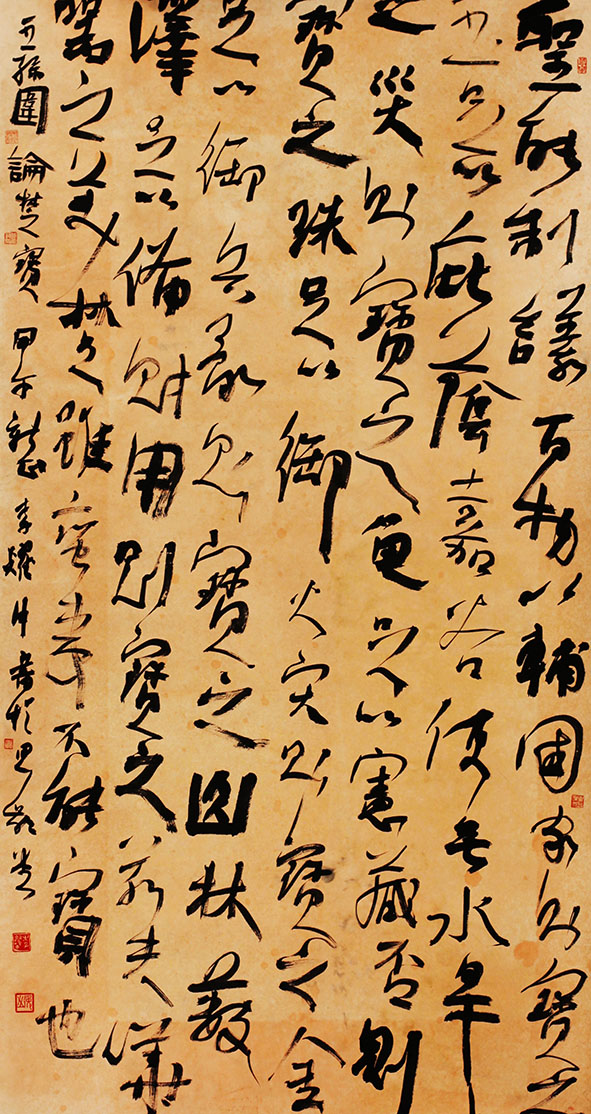 聖能制議百物以輔國家則寶之
玉足以庇蔭嘉谷使無水旱
之災則寶之龜足以憲藏否則
寶之珠足以御火災則寶之金
足以御兵亂則寶之山林藪
澤足以備財用則寶之若夫譁
囂之美楚雖蠻夷不能寶也
王孫圉論楚寶 甲午新正 李耀 書於